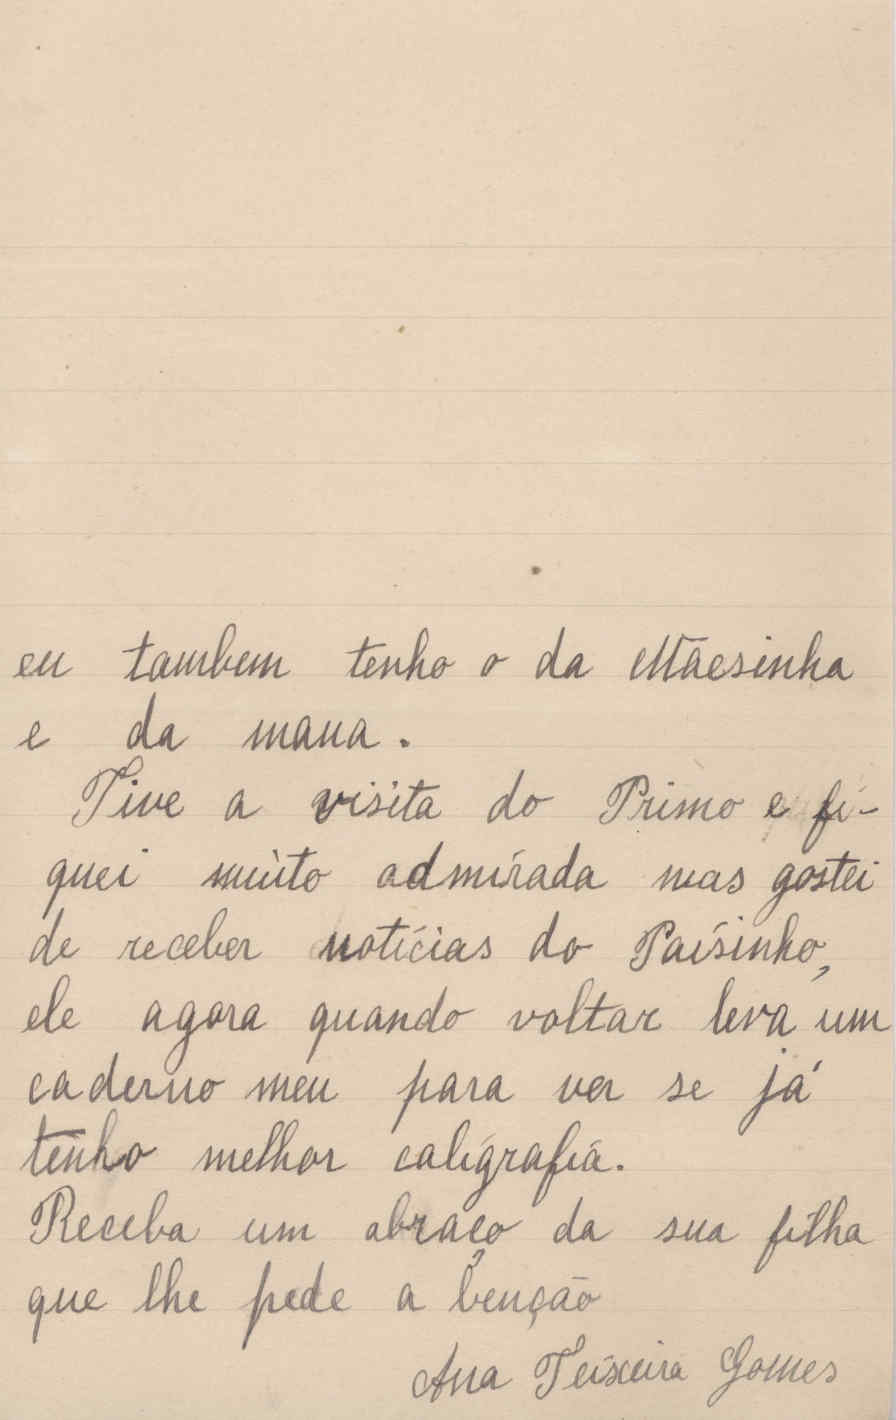 eu tambem tenho o da Mãesinha
e da mana.
Tive a visita do Primo e fi-
quei muito admirada mas gostei
de receber notícias do Paisinho,
ele agora quando voltar leva um
caderno meu para ver se já
tenho melhor caligrafia.
Receba um abraço da sua filha
que lhe pede a benção
Ana Teixeira Gomes